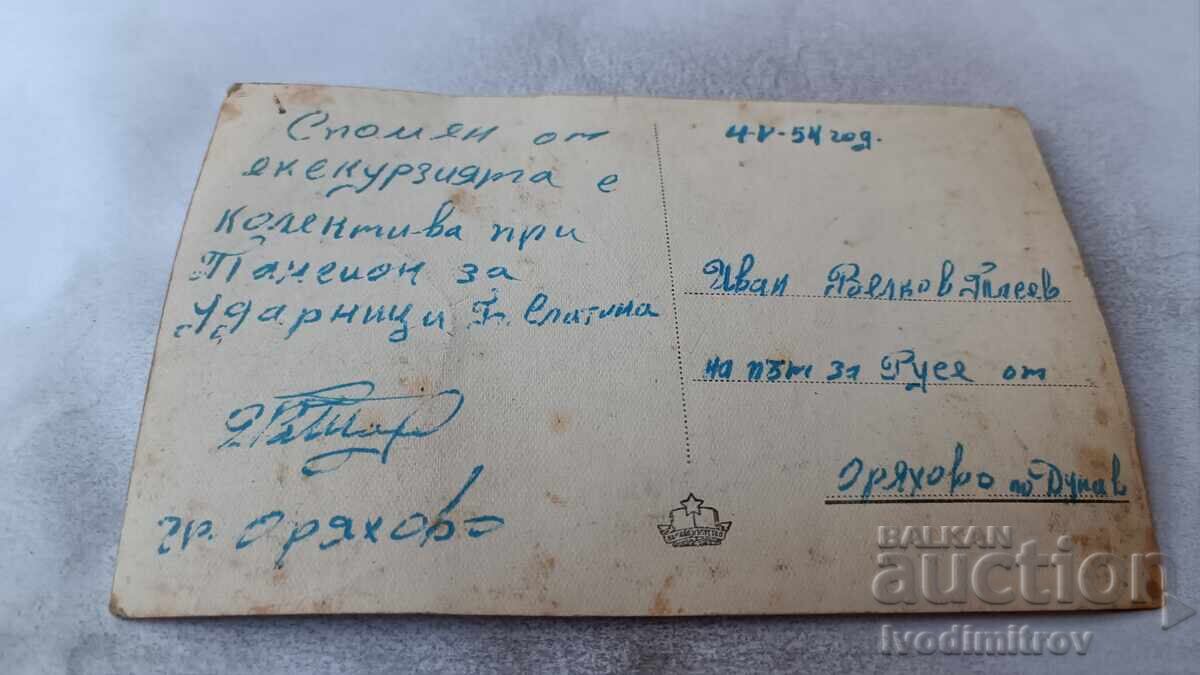 Спомян от
екскурзията с
колектива при
Пансион за
Ударници Б. Слатина
гр. Оряхово
4-V-54 год.
Иван Велков
на път за Русе от
Оряхово по Дунав
BALKAN
auction
Ivodimitrov